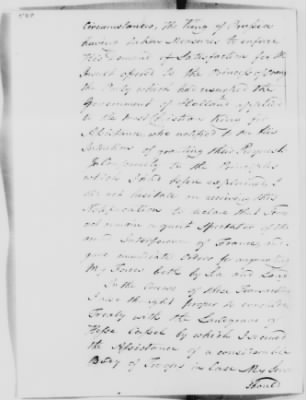 Circumstances, the King of Prussia
having taken Measures to enforce
His Demand of Satisfaction for the
Insult offered to the Princess of Orange
the Party which had usurped the
Government of Holland applied
to the most Christian King for
Assistance, who notified to me his
Intention of granting their Request
In Conformity to the Principles
which I had before explained, I
did not hesitate on receiving this
Notification to declare that I could
not remain a quiet Spectator of the
Interference of France, and
gave immediate Orders for augmenting
My Forces both by Sea and Land
In the Course of these Transactions
I also thought proper to conclude
Treaty with the Landgrave of
Hesse Cassel by which I secured
the Assistance of a considerable
Body of Troops in case My Service
should